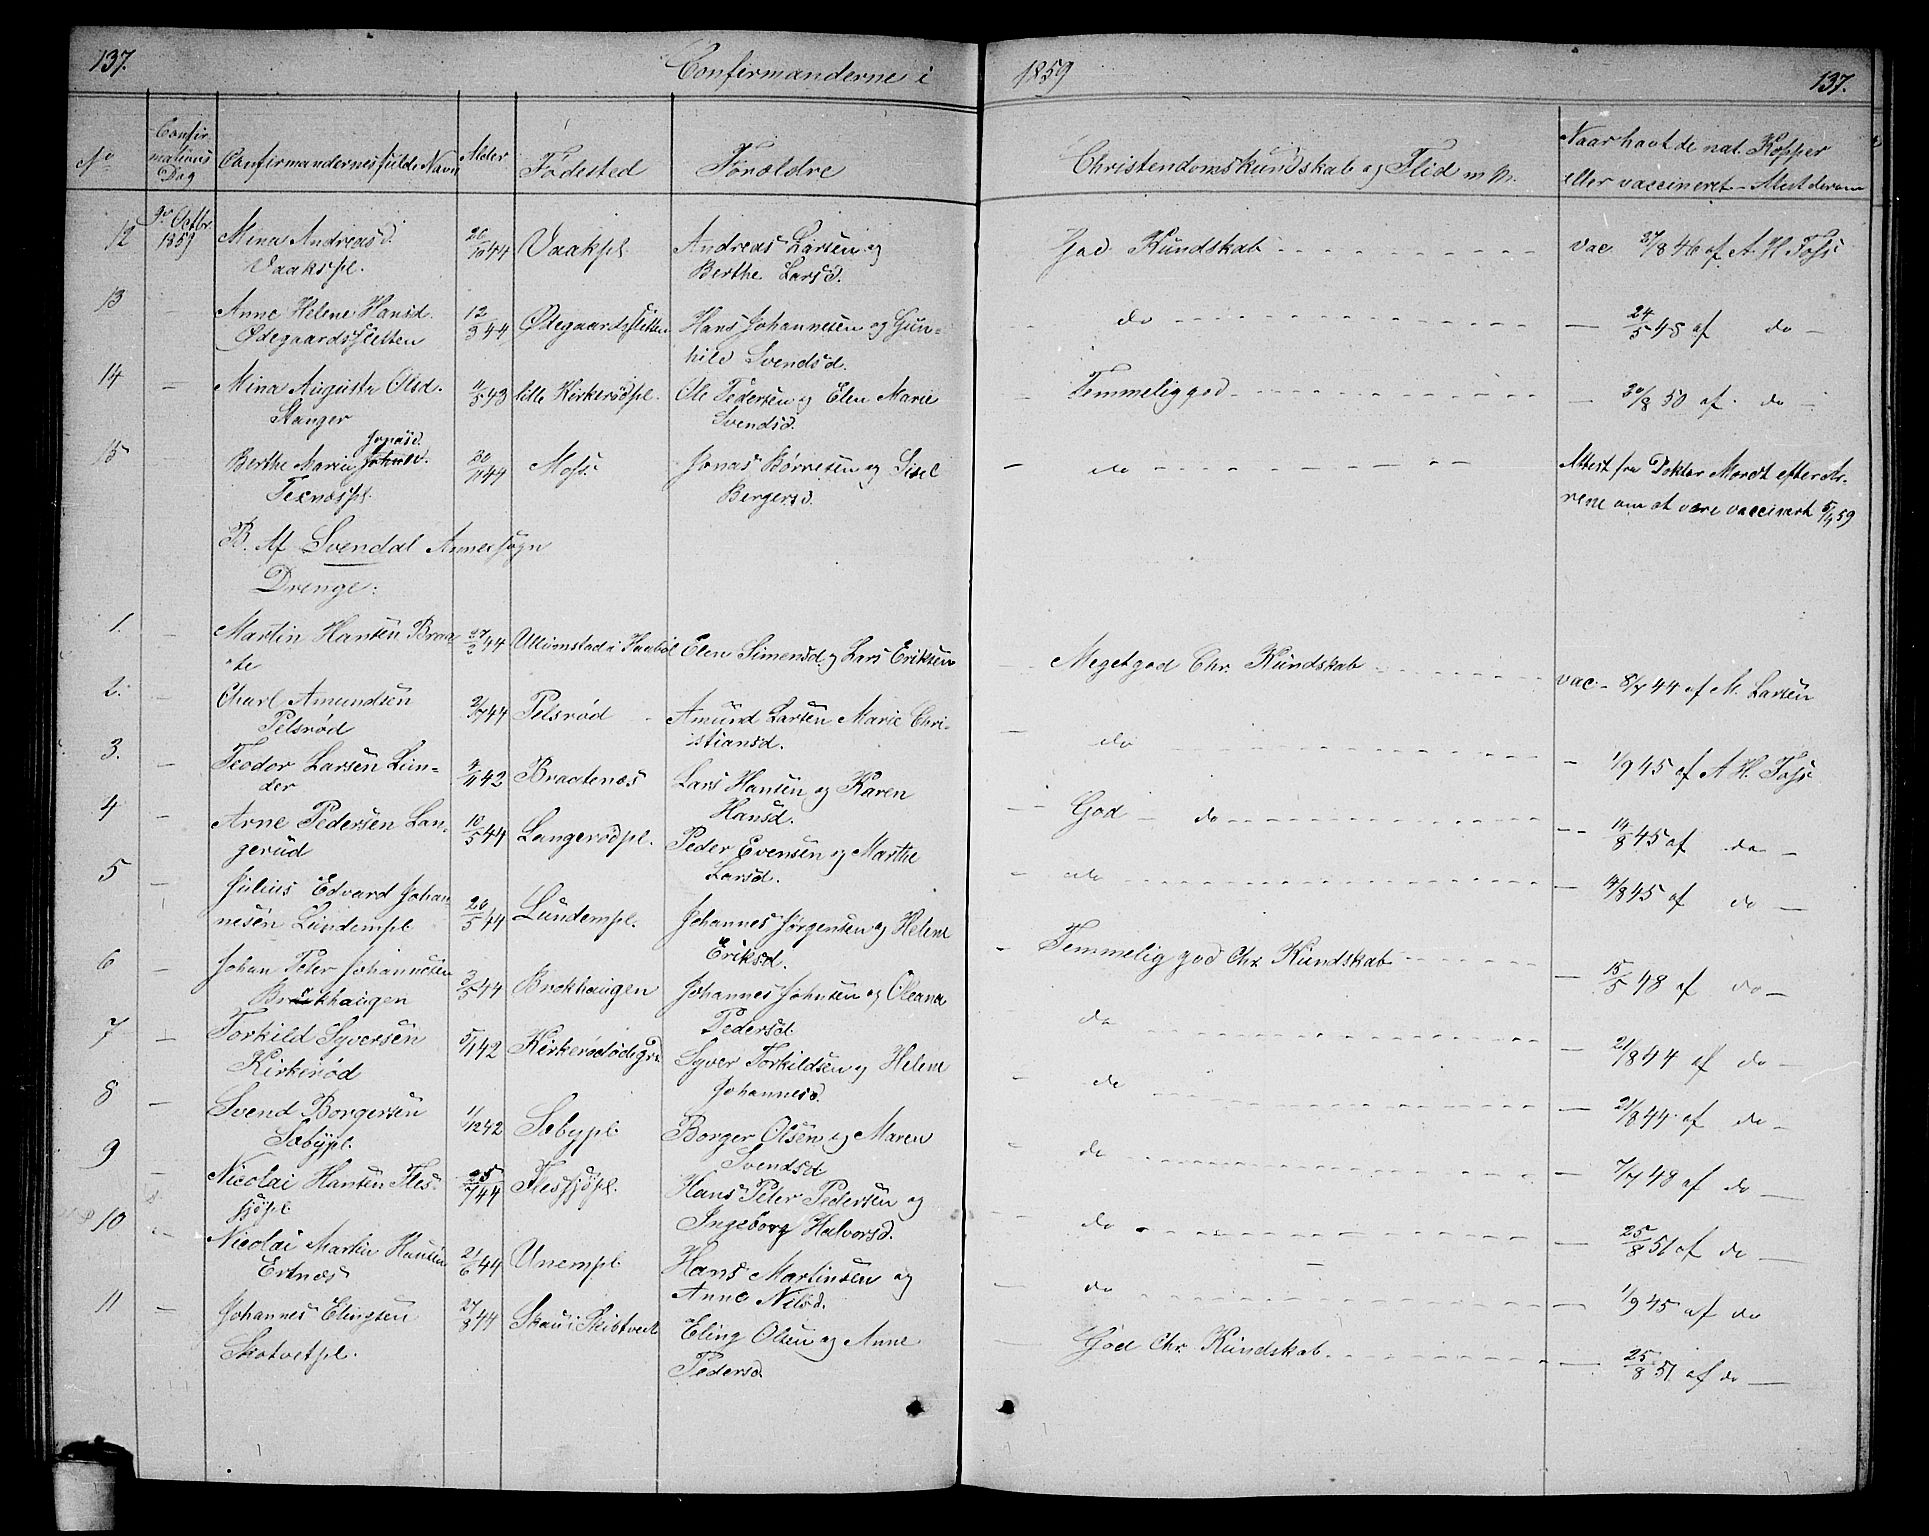 137. Confirmanderne i 1859 137.
No Confirmations Dag Confirmandernes fulde Navn Alder Fødested Forældre Christendomskundskab og Flid m. m. Naar havt de nat. Kopper
eller vaccineret – Attest derom
12 9de Octbr 1859 Mina Andreasd. 20/10 44 Vaakpl. Andreas Larsen og God Kundskab vac 31/8 46 af A. H. Foss
Vaakspl. Berthe Larsd.
13 – Anne Helene Hansd. 12/3 44 Ødegaardssletten Hans Johannesen og Gun- do – 24/5 45 af do –
Ødegaardssletten hild Svendsd.
14 – Mina Augusta Olsd. 11/5 43 lille Kirkerødpl. Ole Pedersen og Elen Marie Temmelig god – 30/8 50 af do –
Stanger Svendsd.
15 Berthe Marie Jonasd. 20/11 44 Moss Jonas Børresen og Sisel – do Attest fra Doktor Mordt efter Ar-
Texnæspl. Bergersd. rene om at være vaccineret 5/9 59
B. Af Svendal Annexsogn
Drenge:
1. – Martin Hansen Braa- 27/2 44 Ullumstad i Haabøl Elen Simensd. og Lars Eriksen Meget god Chr. Kundskab vac – 8/7 44 af M. Larsen
te
2. – Charl Amundsen 2/7 44 Pelsrød Amund Larsen Marie Chri- – do – 1/9 45 af A. H. Foss
Pelsrød stiansd.
3. – Teodor Larsen Lun- 9/11 42 Bragtenæs Lars Hansen og Karen God – do – 14/8 45 af do –
der Hansd.
4 – Arne Pedersen Lan- 10/5 44 Langerødpl. Peder Evensen og Marthe – do – 14/8 45 af do –
gerud Larsd.
5 – Julius Edvard Johan- 20/5 44 Lundempl. Johannes Jørgensen og Helene – Temmelig god Chr. Kundskab – 15/5 48 af do –
nesen Lundempl Eriksd.
6 – Johan Peter Johannesen 3/5 44 Brekhaugen Johannes Johnsen og Oleana do – 21/8 44 af do –
Brekhaugen Pedersd.
7 – Torkild Syversen 5/1 42 Kirkerødødegrd Syver Torkildsen og Helene – do – 21/8 44 af do –
Kirkerød Johannesd.
8 – Svend Borgersen 11/12 42 Sæbypl. Borger Olsen og Maren – do – 7/7 48 af do –
Sæbypl. Svendsd.
9 – Nicolai Hansen Fles- 25/7 44 Flesjøpl. Hans Peter Pedersen og – do – 25/8 51 af do –
jøpl Ingeborg Halvorsd.
10 – Nicolai Martin Hansen 21/6 44 Unempl. Hans Martinsen og – do – 1/9 45 af do
Ertnæs Anne Nilsd.
11 – Johannes Elingsen 27/8 44 Skau i Skibtvedt Eling Olsen og Anne – God Chr. Kundskab – 25/8 51 af do –
Skotvetpl. Pedersd.